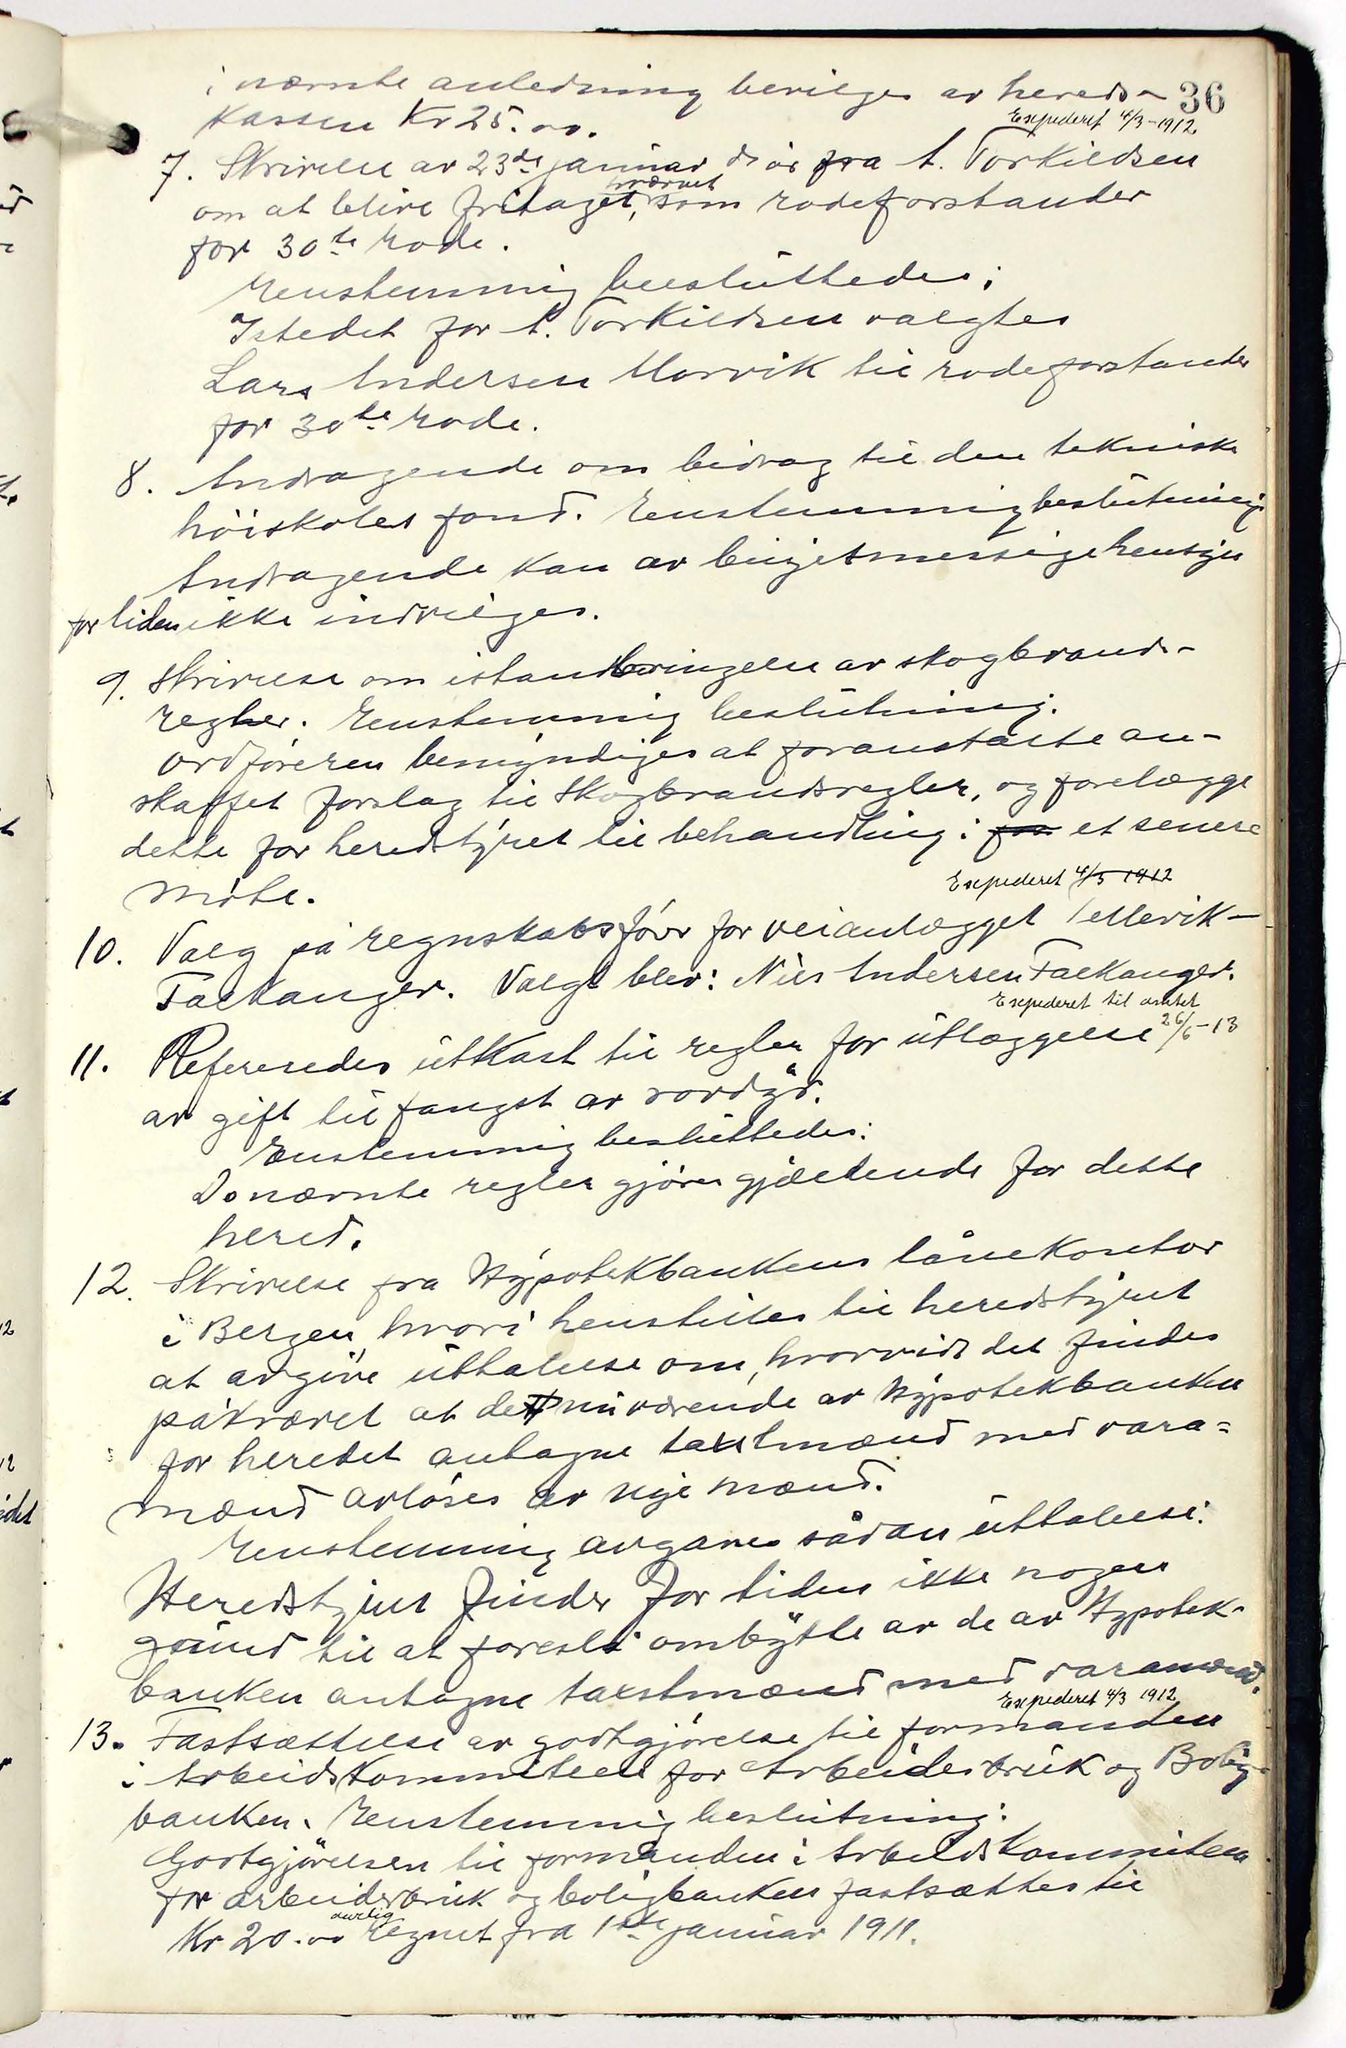 36
i nærnte anledning bevilges av hereds-
kassen Kr 25.00.
Expederet 4/3-1912
7. Skrivelse av 23de januar ds år fra A. Torkildsen
om at blive fritaget, hvervet som rodeforstander
for 30te rode.
Enstemmig besluttedes:
Istedet for A. Torkildsen valgtes
Lars Andersen Morvik til rodeforstander
for 30te rode.
8. Andragende om bidrag til den tekniske
høiskoles fond. Enstemmig beslutning:
Andragende kan av bugetmessige hensyn
for tiden ikke indvilges.
9. Skrivelse om istandbringelse av skogbrands-
regler. Enstemmig beslutning.
Ordføreren bemyndiges at foranstalte an-
skaffet forslag til Skogbrandsregler, og forelægge
dette for heredstyret til behandling i for et senere
møte.
Expederet 4/3 1912
10. Valg på regnskabsfører for veianlægget Tellevik-
Falkanger. Valgt blev: Nils Andersen Falkanger.
Expederet til amtet
26/6-13
11. Refereredes utkast til regler for utlæggelse
av gift til fangst av rovdyr.
Enstemmig besluttedes:
Do nærnte regler gjøres gjældende for dette
hered.
12. Skrivelse fra Hypotekbankens lånekontor
i Bergen, hvori henstilles til heredstyret
at avgive uttalelse om, hvorvidt det findes
påkrævet at de nuværende av Hypotekbanken
for heredet antagne taxtmænd med vara=
mænd avløses av nye mænd.
Enstemmig avgaves sådan uttalelse:
Heredstyret finder for tiden ikke nogen
grund til at foreslå ombytte av de av Hypotek-
banken antagne taxstmænd med varamænd.
Expederet 4/3 1912
13. Fastsættelse av godtgjørelse til formanden
i Arbeidskommiteen for Arbeidersbruk og Bolig-
banken. Enstemmig beslutning:
Godtgjørelsen til formanden i Arbeidskommiteen
for arbeidersbruk og boligbanken fastsættes til
Kr 20.00 aarlig regnet fra 1ste januar 1911.